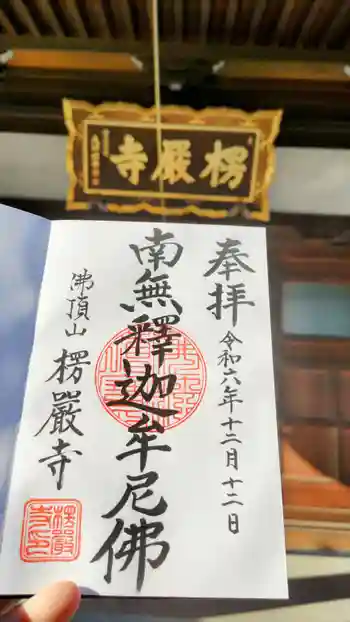 楞嚴寺
奉拝
令和六年十二月十二日
南無釋迦牟尼佛
佛頂山
楞嚴寺
楞嚴
寺印